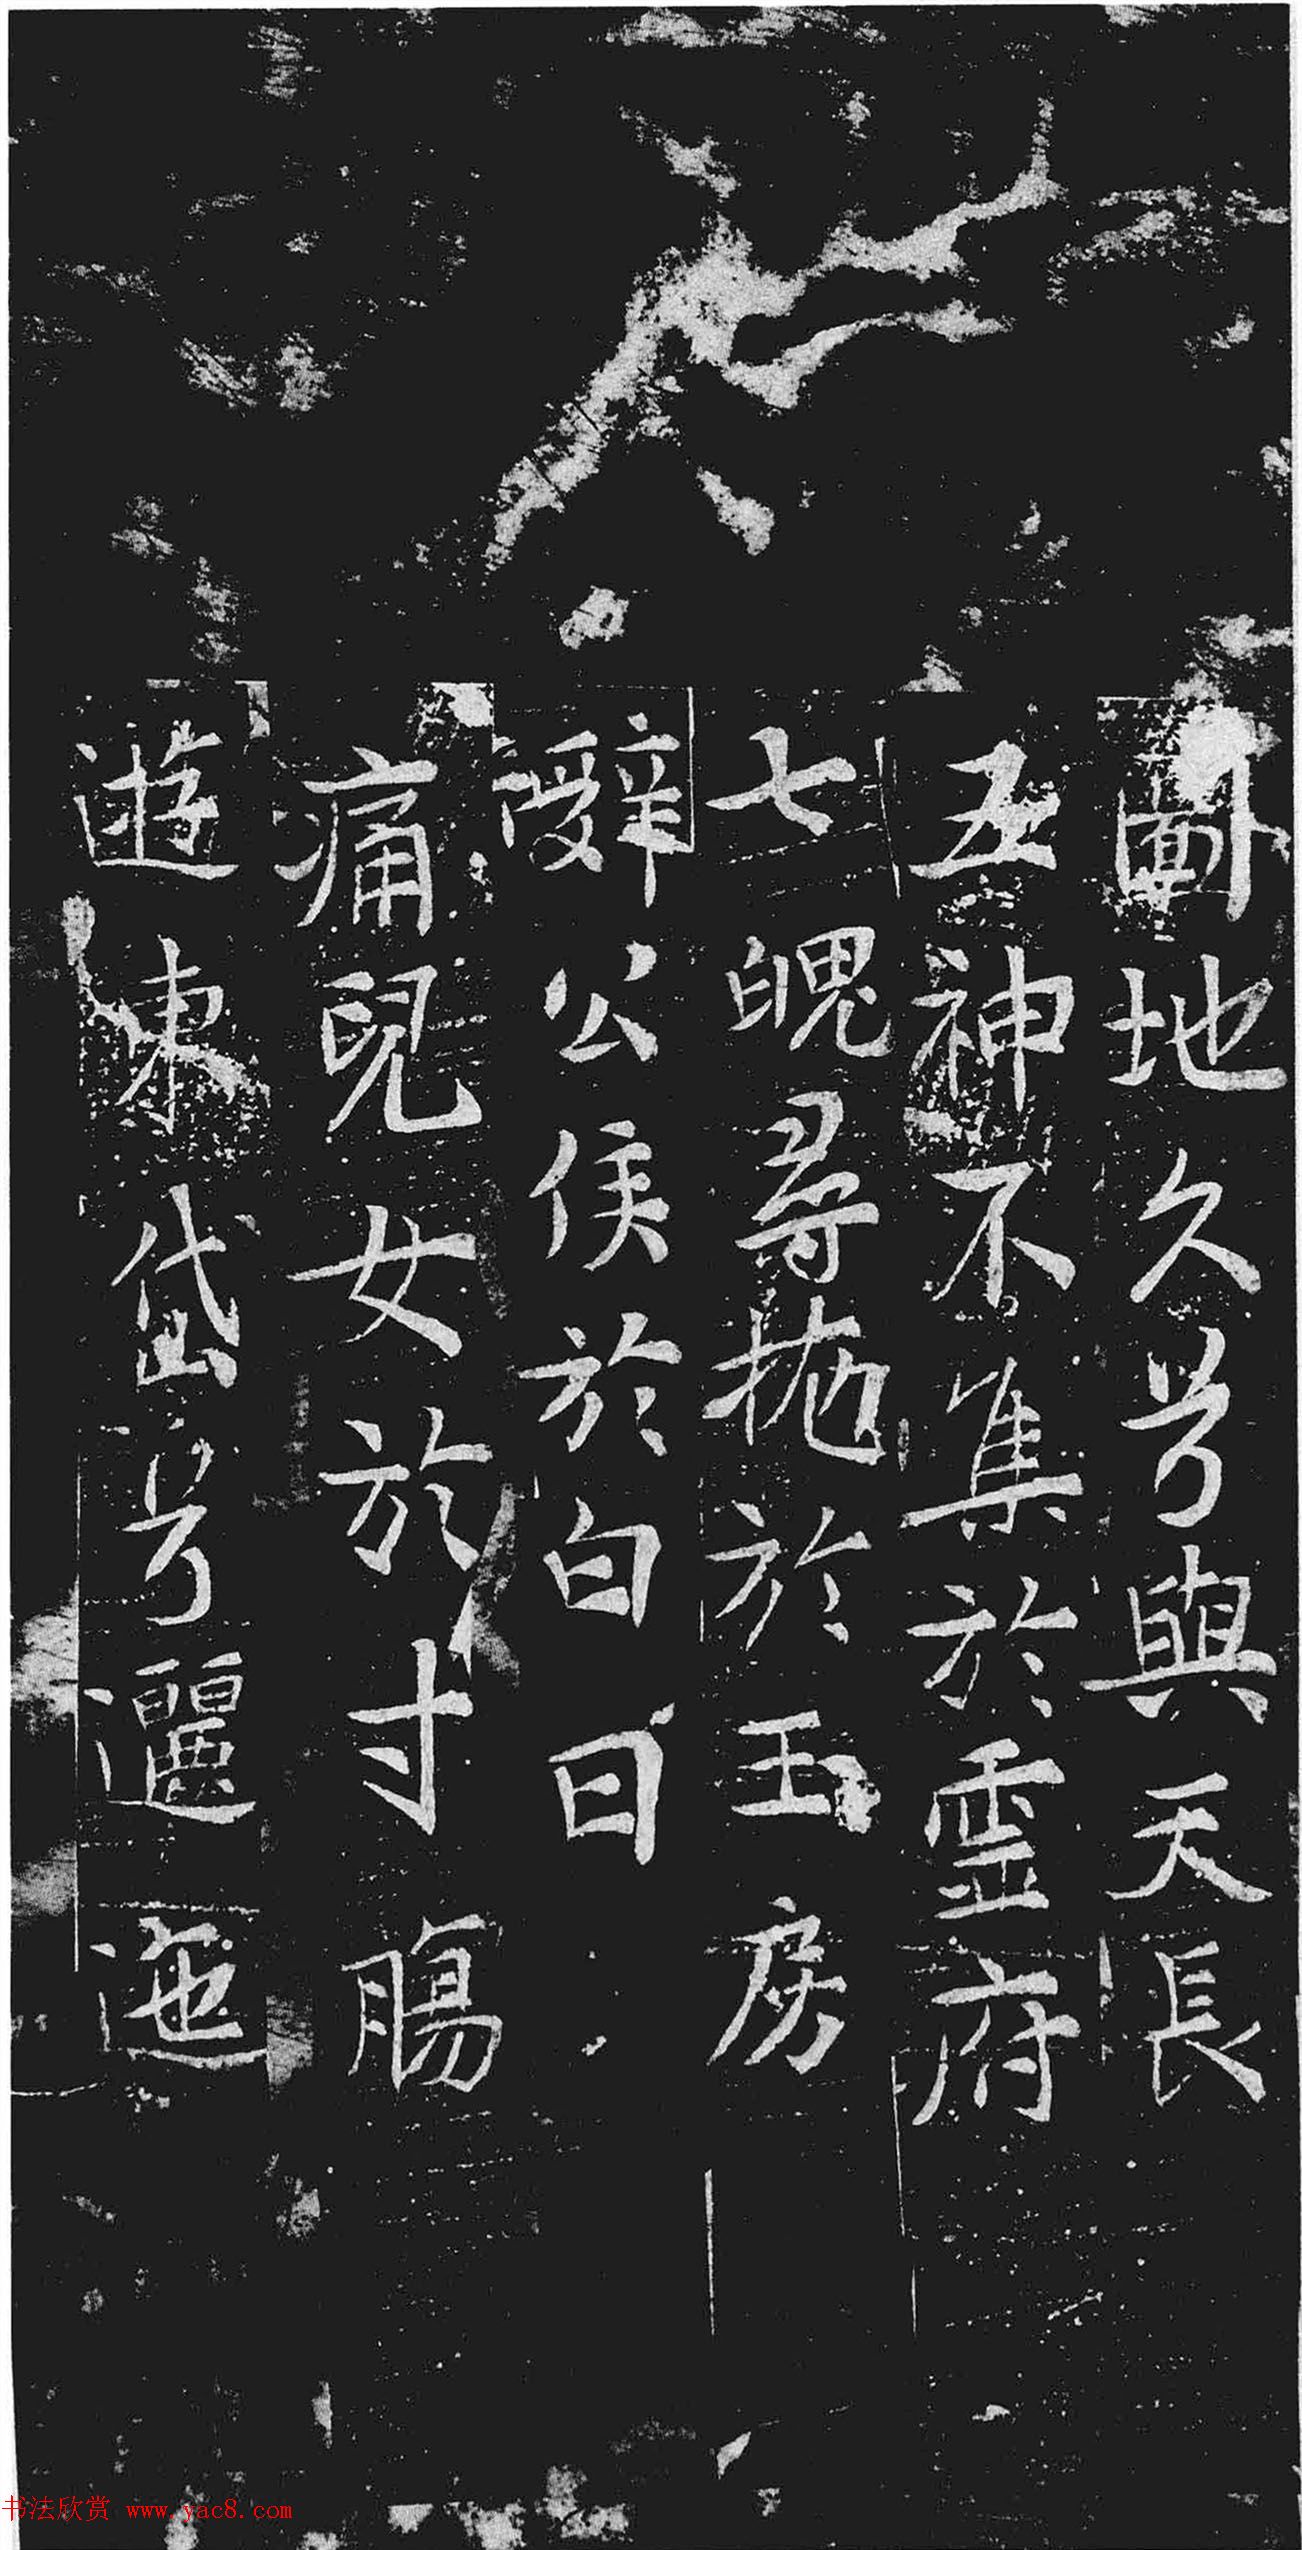 地久兮與天長
五神不集於靈府
七魄尋拋於玉房
辭公侯於白日
痛兒女於寸腸
遊東岱兮邐迤
书法欣赏 www.yac8.com